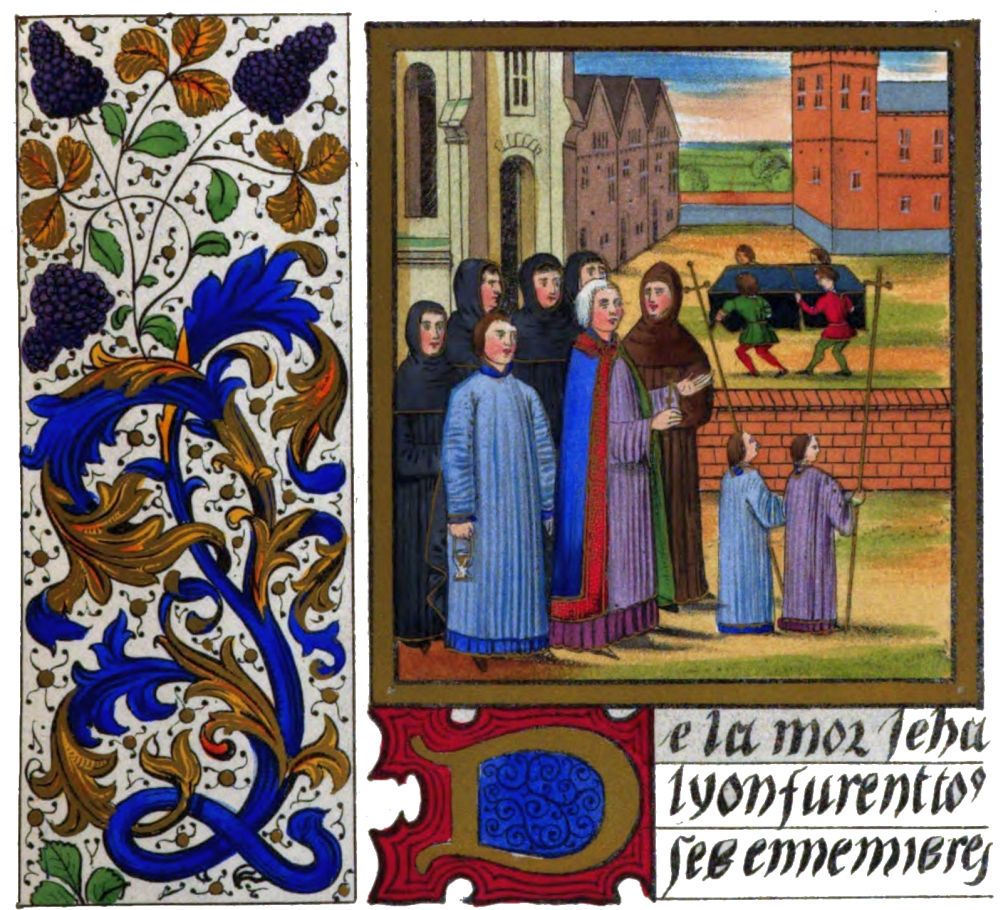 De la mor Jeha
lyon furent to⁹
ses ennemi